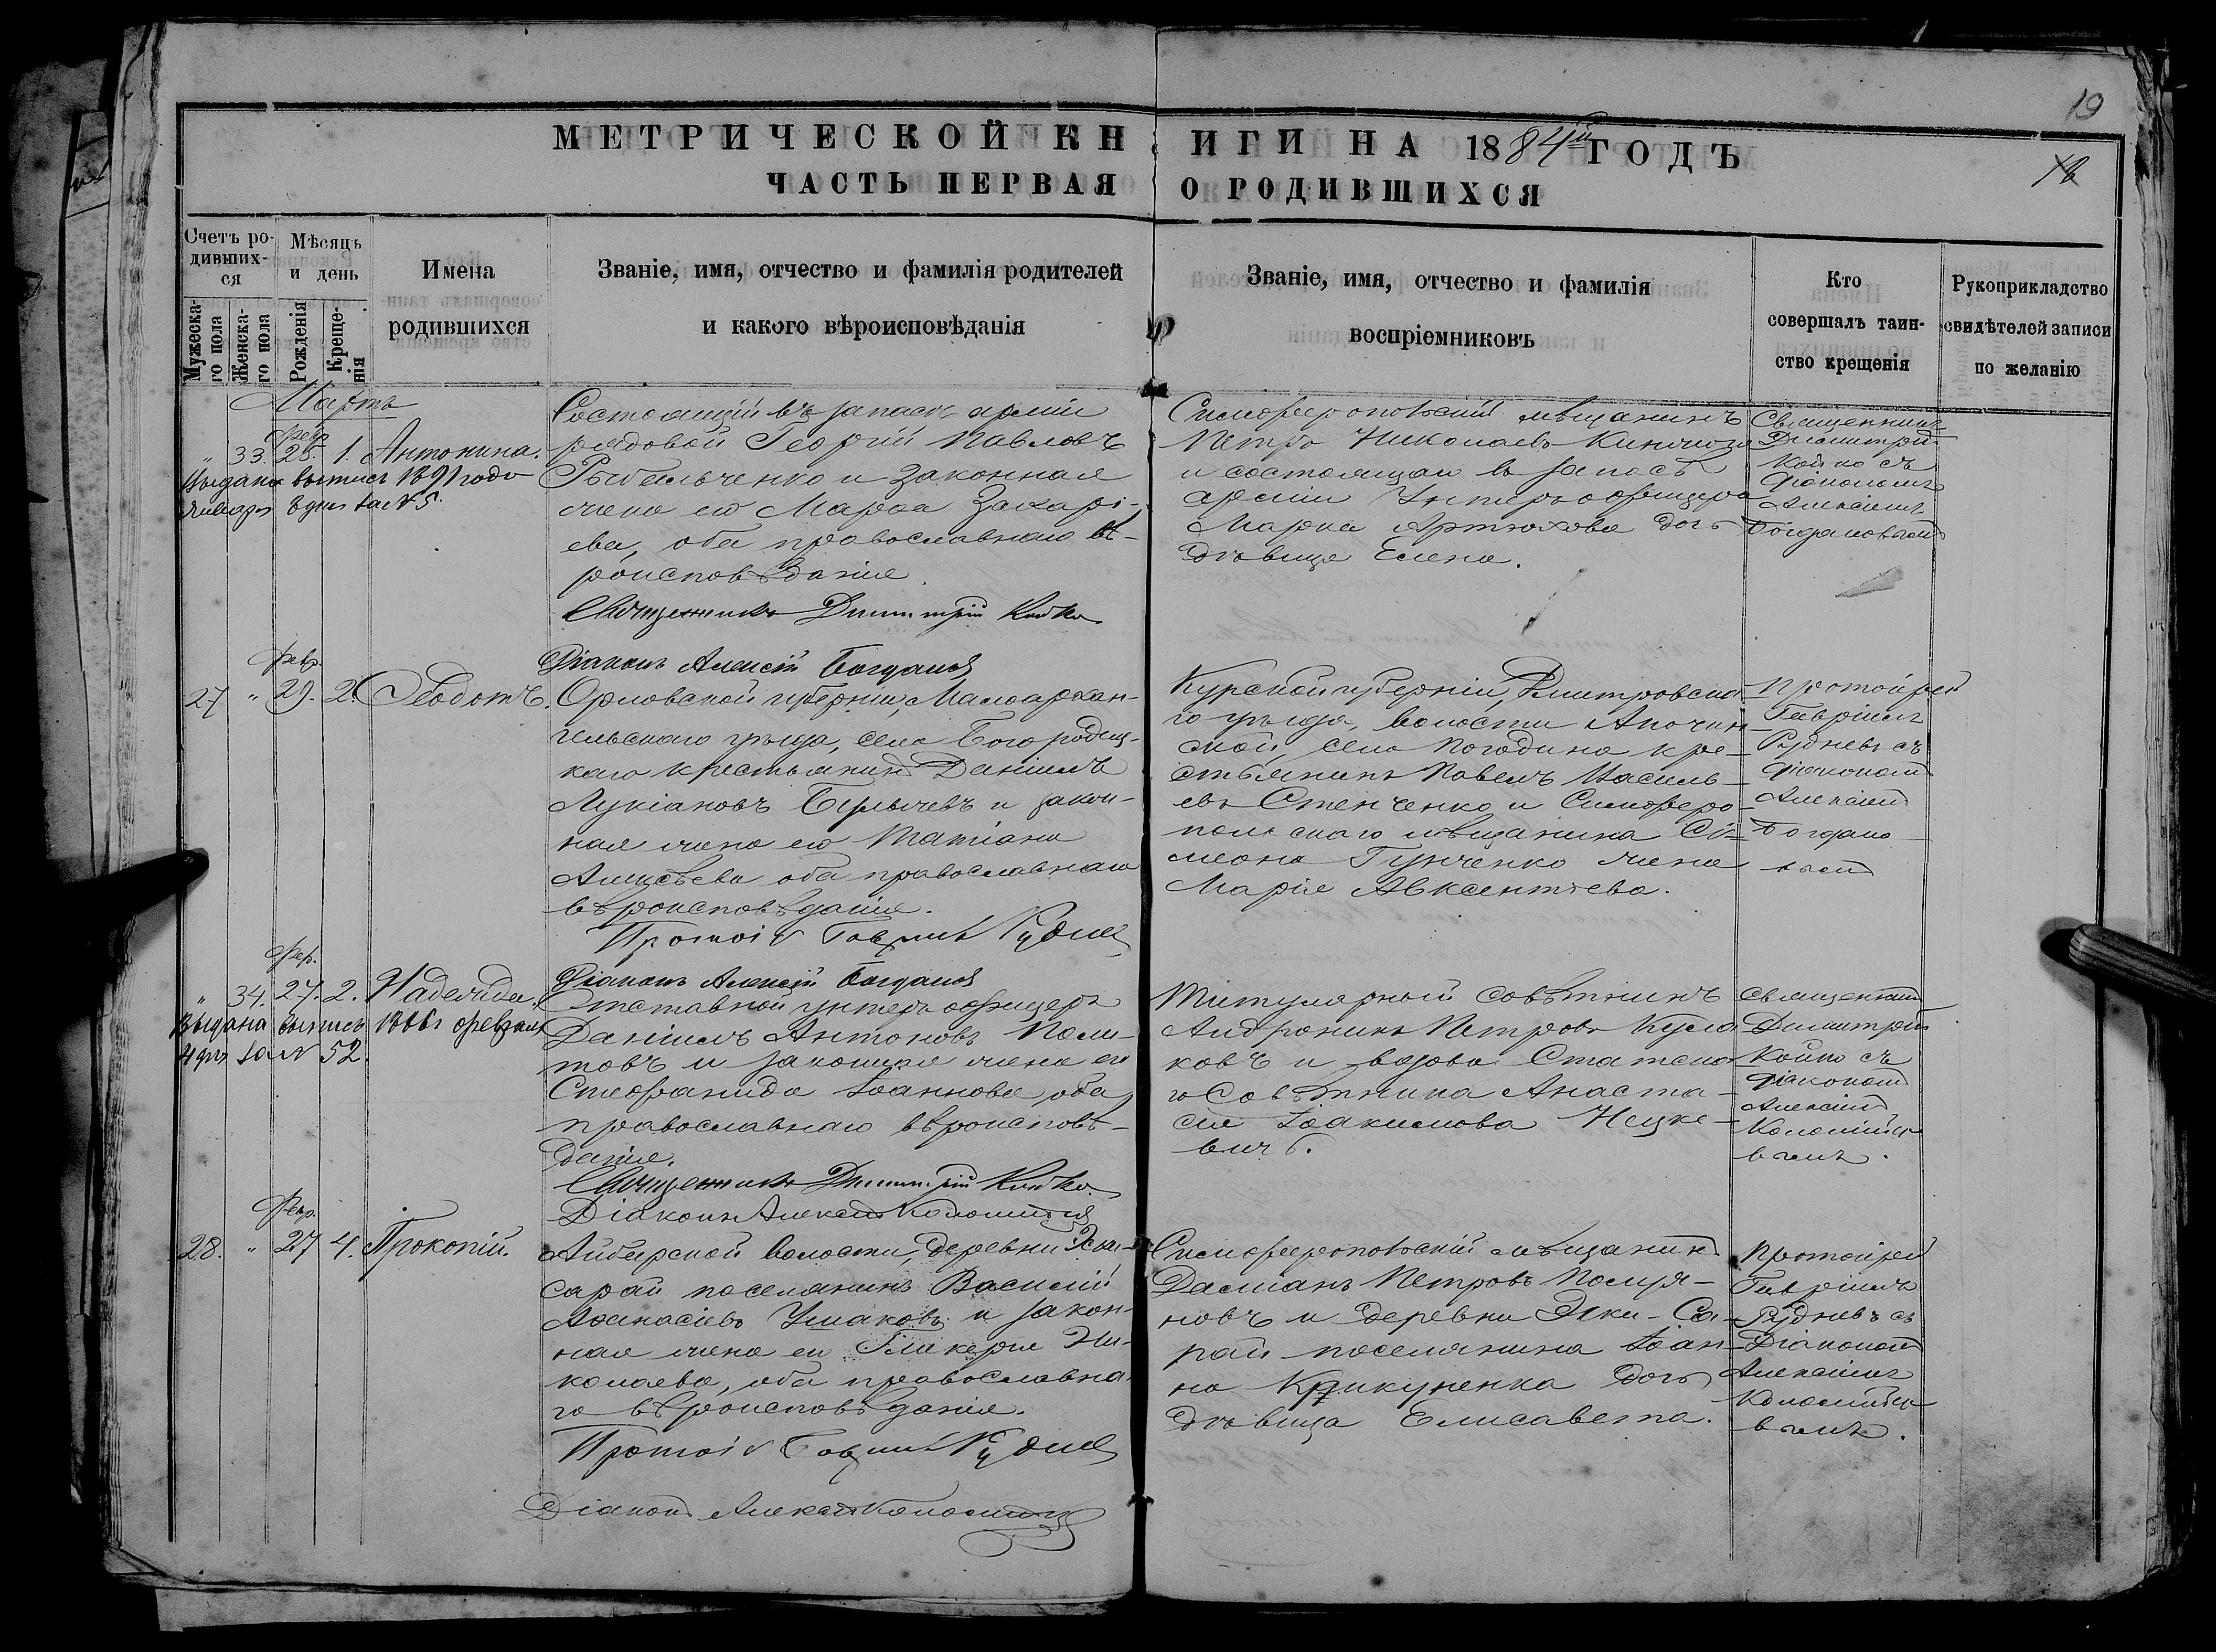 19
МЕТРИЧЕСКОЙ КНИГИ НА 1884й ГОДЪ
18
ЧАСТЬ ПЕРВАЯ О РОДИВШИХСЯ
Счетъ ро-
дивших-
ся
Мужеска-
го пола
Женска-
го пола
Мѣсяцъ
и день
Рожденія
Креще-
нія
Имена
родившихся
Званіе, имя, отчество и фамилія родителей
и какого вѣроисповѣданія
Званіе, имя, отчество и фамилія
воспріемниковъ
Кто
совершалъ таин-
ство крещенія
Рукоприкладство
свидѣтелей записи
по желанію
Мартъ
Фев.
" 33. 28. 1. Антонина.
Выдана выпись 1891 года
января 8 дня за № 5.
Состоящій въ запасѣ арміи
рядовой Георгій Павловъ
и законная
жена его Марѳа Захарі-
ева, оба православнаго вѣ-
роисповѣданія.
Священникъ Димитрій Койко
Діаконъ Алексій Богдановъ
Симферопольскій мѣщанинъ
Петръ Николаевъ
и состоящаго въ запасѣ
арміи Унтеръ офицера
Марка Артюхова дочь
дѣвица Елена.
Священникъ
Димитрій
Койко съ
Діакономъ
Алексіемъ
Богдановымъ
Фев.
27 " 29. 2. Ѳеодотъ.
Орловской губерніи, Малоархан-
гельскаго уѣзда, села Богородиц-
каго крестьянинъ Даніилъ
Лукіановъ и закон-
ная жена его Татіана
Алексѣева оба православнаго
вѣроисповѣданія.
Протоі Гавріилъ Рудневъ
Діаконъ Алексій Богдановъ
Курской губерніи, Дмитровска-
го уѣзда, волости
села Погодина кре-
стьянинъ Павелъ Василь-
евъ Стенченко и Симферо-
польскаго мѣщанина Сі-
меона Гунченко жена
Марія Авксентіева.
Протоірей
Гавріилъ
Рудневъ съ
Діакономъ
Алексіемъ
Богдано-
вымъ
Фев.
" 34. 27. 2. Надежда.
Выдана выпись февраля
4 дня за № 52.
Отставной унтеръ офицеръ
Даніилъ Антоновъ
и законная жена его
Стефанида Іоаннова, оба
православнаго вѣроисповѣ-
данія.
Священникъ Димитрій Койко
Діаконъ Алексій Коломійцевъ
Титулярный Совѣтникъ
Андроникъ Петровъ
и вдова Статска-
го Совѣтника Анаста-
сія Іоакимова
Священникъ
Димитрій
Койко съ
Діакономъ
Алексіемъ
Коломійце-
вымъ.
Фев.
28. " 27 4. Прокопій.
волости, деревни Эски-
сарай поселянинъ Василій
Аѳанасіевъ Ушаковъ и закон-
ная жена его Гликерія Ни-
колаева, оба православна-
го вѣроисповѣданія.
Протоі Гавріилъ Рудневъ
Діаконъ Алексій Коломійцевъ
Симферопольскій мѣщанинъ
Даміанъ Петровъ
и деревни Эски-Са-
рай поселянина Іоан-
на Крикуненка дочь
дѣвица Елисавета.
Протоірей
Гавріилъ
Рудневъ съ
Діакономъ
Алексіемъ
Коломійце-
вымъ.